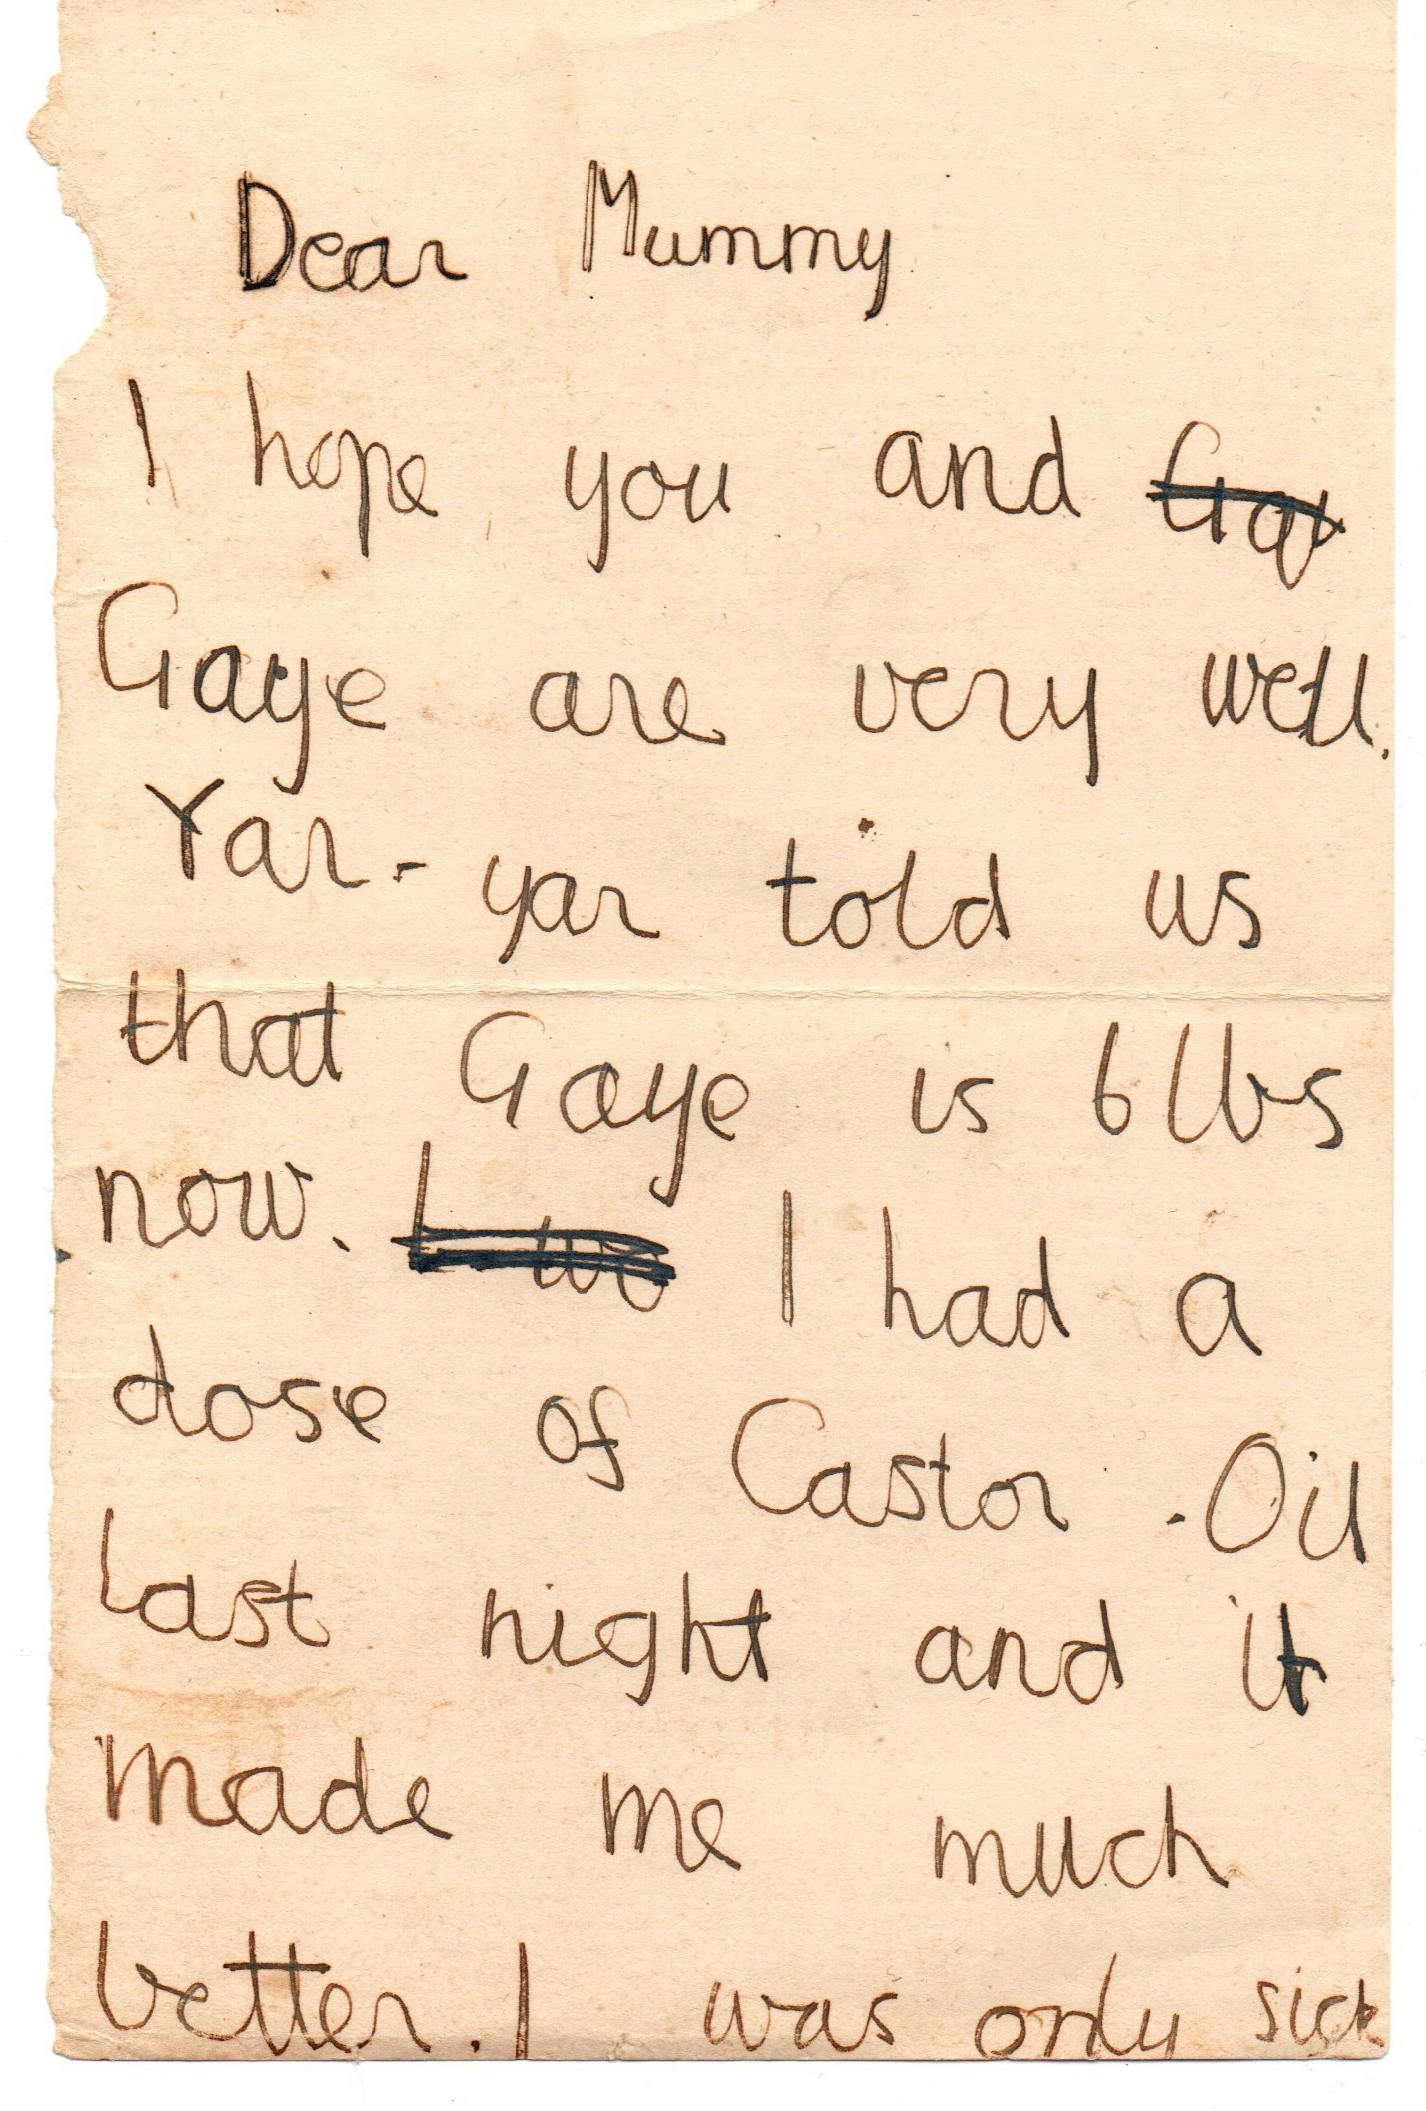 Dear Mummy
I hope you and Gay
Gaye are very well.
Yar-yar told us
that Gaye is 6lbs
now. I had a
dose of Castor-Oil
last night and it
made me much
better. I was only sick